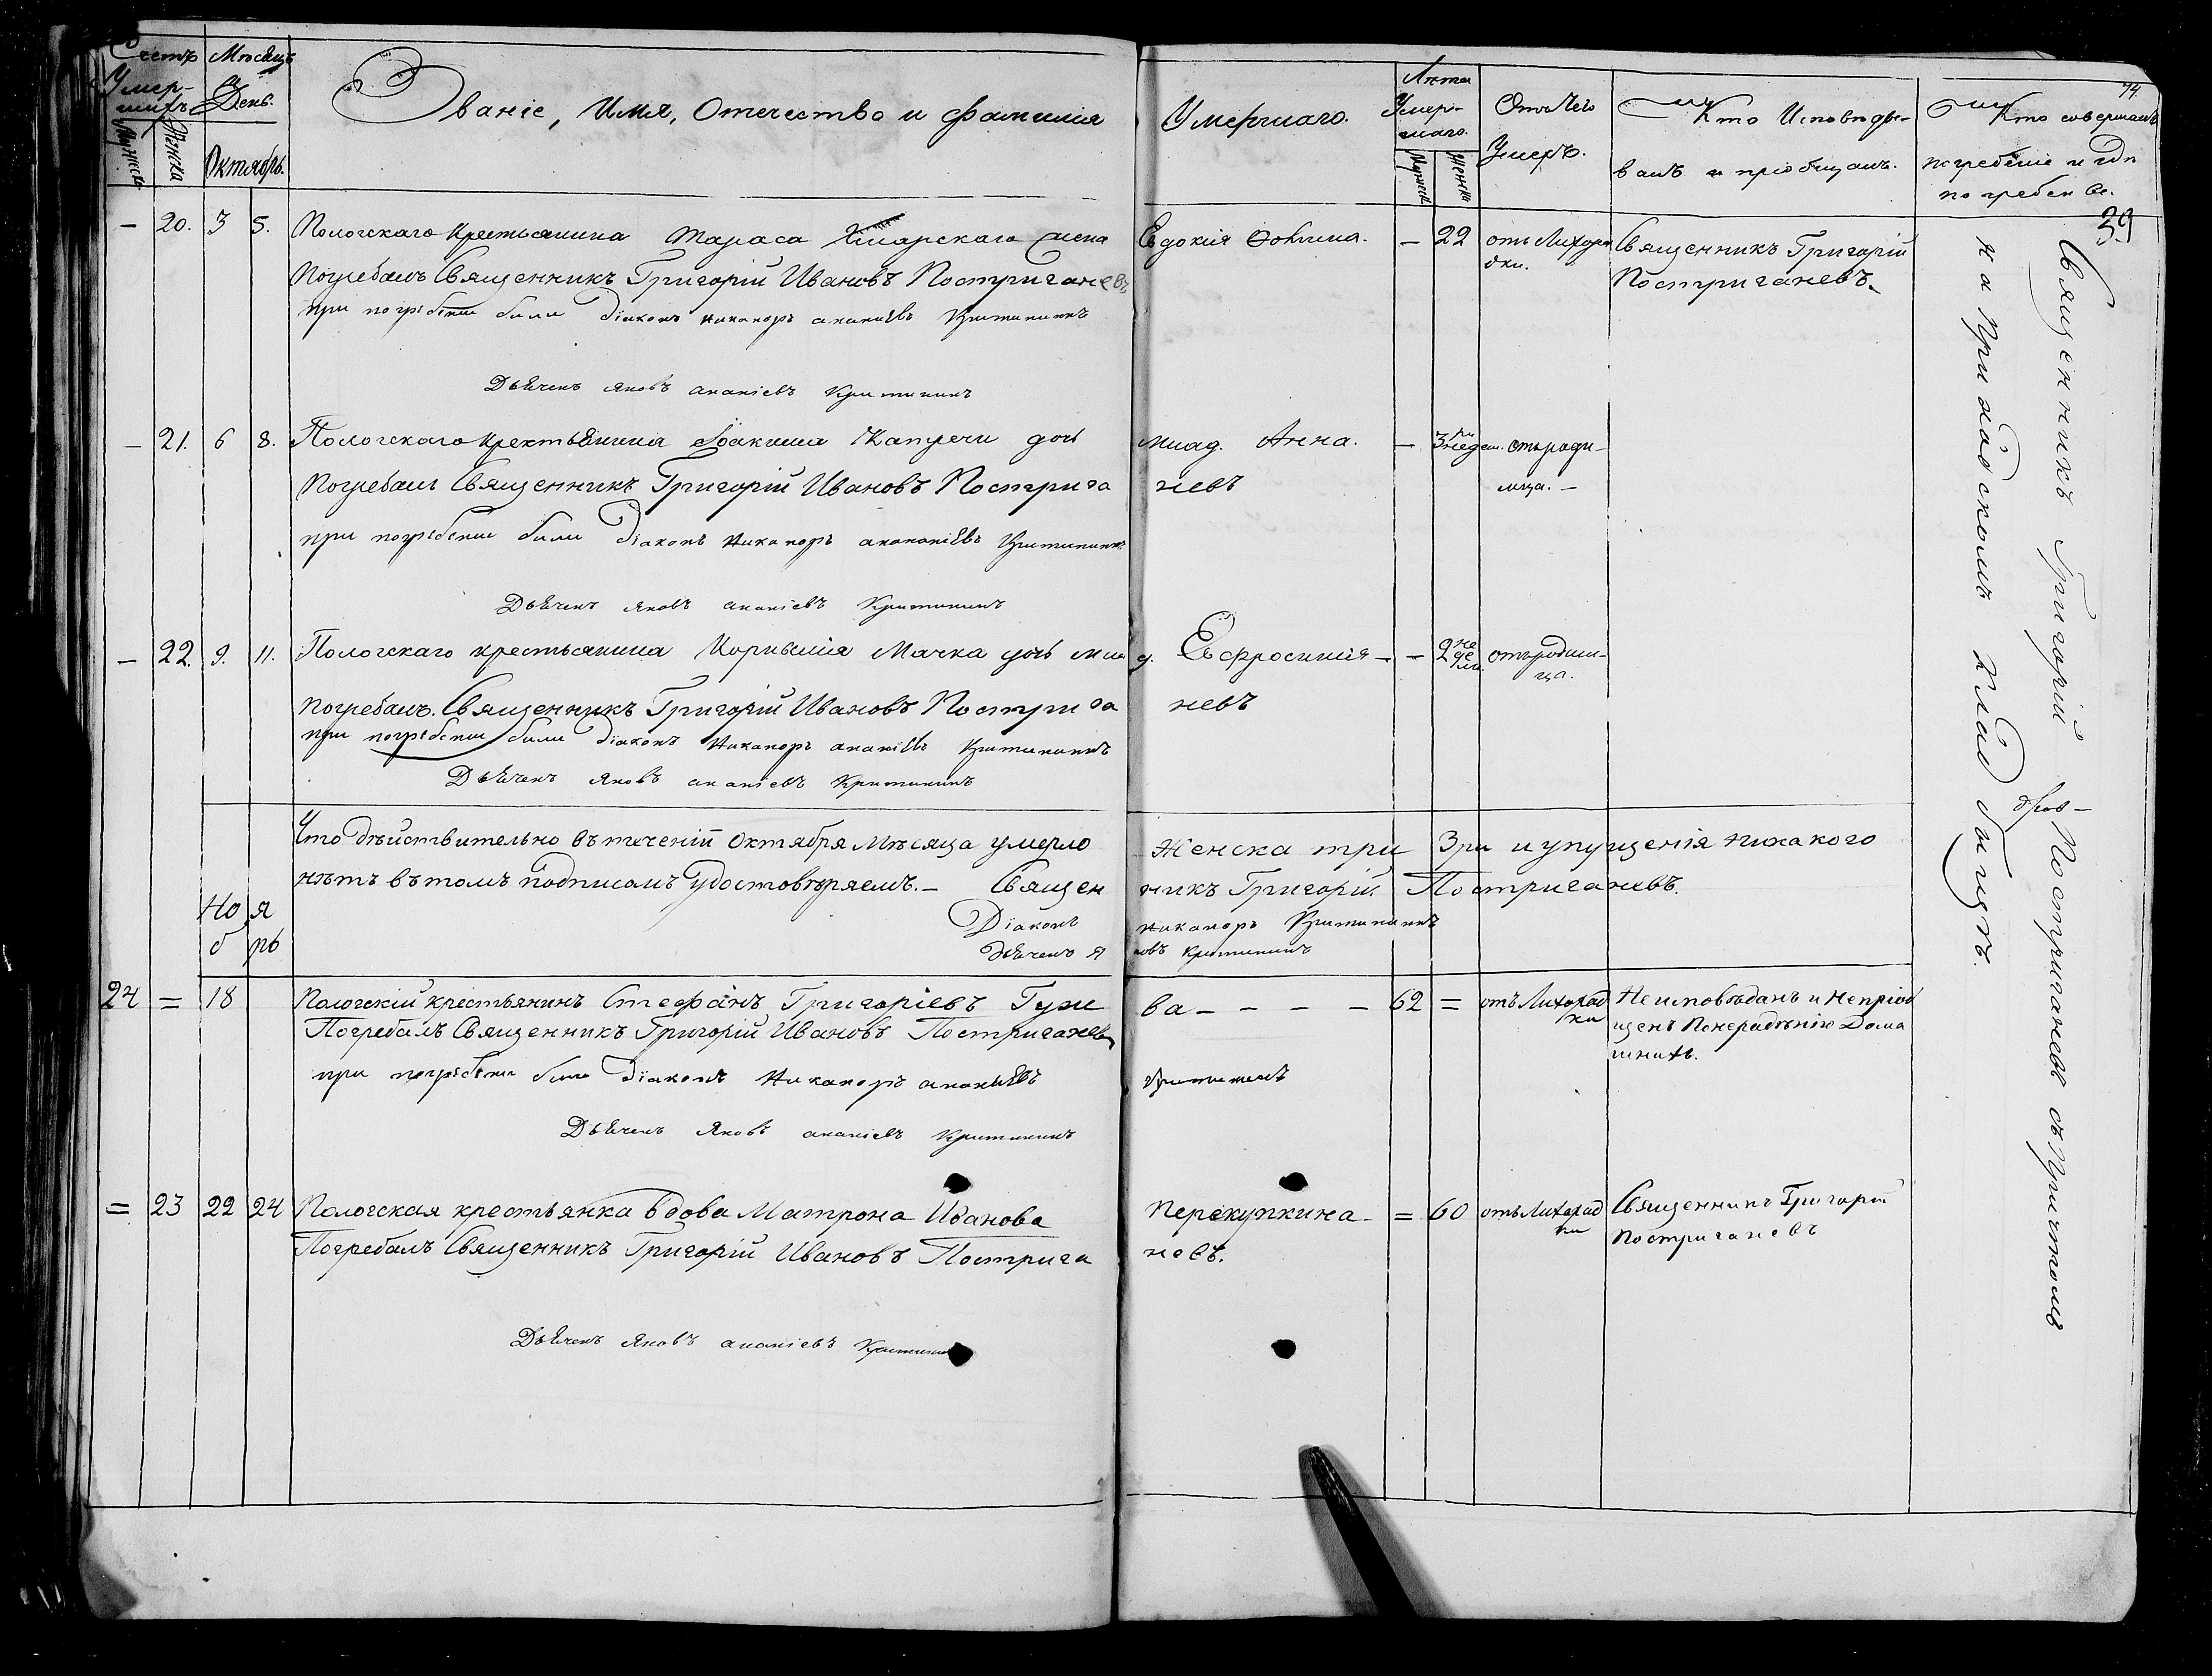 Счетъ Умер-шихъ
Мужеска Женска
Мѣсяцъ и День.
Октябрь.
Званіе, Имя, Отечество и Фамилія Умершаго.
Лѣта Умер-шаго.
Мужеска Женска
Отъ Чего Умеръ.
Кто Исповѣды-
валъ и пріобщалъ.
Кто совершалъ
погребеніе и гдѣ
погребены.
39
— 20. 3 5. Пологскаго крестьянина Тараса жена Евдокія — 22 отъ Лихора Священникъ Григорій
дки. Постриганевъ.
Погребалъ Священникъ Григорій Ивановъ Постриганевъ
при погребеніи были Діаконъ Никаноръ ананіевъ Критининъ
Дьячекъ Яковъ ананіевъ Критининъ
— 21. 6 8. Пологскаго крестьянина Іоакима дочь млад. Анна. — 3 недѣли. отъ роди-
мца. —
Погребалъ Священникъ Григорій Ивановъ Постриганевъ
при погребеніи были Діаконъ Никаноръ Критининъ
Дьячекъ Яковъ ананіевъ Критининъ
— 22. 9. 11. Пологскаго крестьянина Мачка дочь млад. Евфросинія — — 2 недели отъ родим-
ца.
Погребалъ. Священникъ Григорій Ивановъ Постриганевъ
при погребеніи были Діаконъ Никаноръ ананіевъ Критининъ
Дьячекъ Яковъ ананіевъ Критининъ
Что дѣйствительно въ теченіи Октября Мѣсяца умерло Женска три 3 ри и упущенія никакого
нѣтъ въ томъ подписомъ удостовѣряемъ. — Священникъ Григорій Постриганевъ.
Діаконъ Никаноръ Критининъ
Дьячекъ Яковъ Критининъ
Ноябрь
24 = 18 Пологскій крестьянинъ Стефанъ Григоріевъ Гужва — — — — 62 = отъ Лихорад Не исповѣданъ и не пріоб
ки щенъ По нерадѣнію Дома
шнихъ.
Погребалъ Священникъ Григорій Ивановъ Постриганевъ
при погребеніи были Діаконъ Никаноръ ананіевъ Критининъ
Дьячекъ Яковъ ананіевъ Критининъ
= 23 22 24 Пологская крестьянка вдова Матрона Иванова Перекупкина — = 60 отъ Лихорад Священникъ Григорій
ки Постриганевъ
Погребалъ Священникъ Григорій Ивановъ Постриганевъ.
Дьячекъ Яковъ ананіевъ Критининъ
Священникъ Григорій Постриганевъ съ Причтомъ
на Приходскомъ Кладбищѣ.